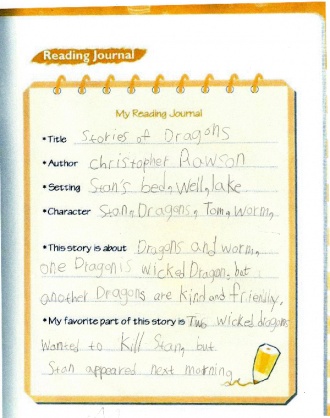 Reading Journal
My Reading Journal
• Title Stories of Dragons
• Author Christopher Rawson
• Setting Stan's bed, Well, lake
• Character Stan, Dragons, Tom, worm,
• This story is about Dragons and worm,
one Dragon is wicked Dragon, but
another Dragons are kind and friendly.
• My favorite part of this story is Two wicked dragons
wanted to kill Stan, but
Stan appeared next morning